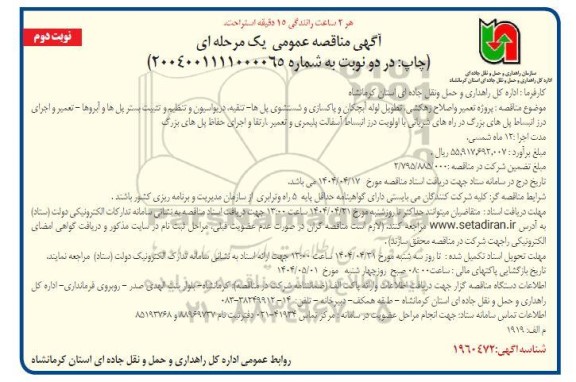 هر ۲ ساعت رانندگی ۱۵ دقیقه استراحت.
نوبت دوم
آگهی مناقصه عمومی یک مرحله ای
(چاپ: در دو نوبت به شماره ۲۰۰۴۰۰۱۱۱۱۰۰۰۰۶۵)
سازمان راهداری و حمل و نقل جاده ای
اداره کل راهداری و حمل و نقل جاده ای استان کرمانشاه
کارفرما: اداره کل راهداری و حمل ونقل جاده ای استان کرمانشاه
موضوع مناقصه: پروژه تعمیر واصلاح زهکشی، تطویل لوله آبچکان و پاکسازی و شستشوی پل ها- تنقیه، دریواسیون و تنظیم و تثبیت بستر پل ها و آبروها - تعمیر و اجرای
درز انبساط پل های بزرگ در راه های شریانی با اولویت درز انبساط آسفالت پلیمری و تعمیر ،ارتقا و اجرای حفاظ پل های بزرگ
مدت اجرا :۱۲ ماه شمسی.
مبلغ برآورد : ۵۵,۹۱۷,۶۹۲,۰۰۷ ریال
مبلغ تضمین شرکت در مناقصه : ۲/۷۹۵/۸۸۵/۰۰۰
تاریخ درج در سامانه ستاد جهت دریافت اسناد مناقصه مورخ ۱۴۰۴/۰۴/۱۷ می باشد.
شرایط مناقصه گر: کلیه شرکت کنندگان می بایستی دارای گواهینامه حداقل پایه ۵ راه وترابری از سازمان مدیریت و برنامه ریزی کشور باشند .
مهلت دریافت اسناد : متقاضیان میتوانند حداکثر تا روزشنبه مورخ ۱۴۰۴/۰۴/۲۱ ساعت ۱۳:۰۰ جهت دریافت اسناد مناقصه به نشانی سامانه تدارکات الکترونیکی دولت (ستاد)
به آدرس www.setadiran.ir مراجعه کنند. (لازم است مناقصه گران در صورت عدم عضویت قبلی، مراحل ثبت نام در سایت مذکور و دریافت گواهی امضای
الکترونیکی راجهت شرکت در مناقصه محقق سازند).
مهلت تحویل اسناد تکمیل شده : تا روز سه شنبه مورخ ۱۴۰۴/۰۴/۳۱ ساعت ۱۳:۰۰ جهت ارائه اسناد به نشانی سامانه تدارک الکترونیک دولت (ستاد) مراجعه نمایند.
تاریخ بازگشایی پاکتهای مالی : ساعت ۸:۰۰ صبح روز چهار شنبه مورخ ۱۴۰۴/۰۵/۰۱
اطلاعات دستگاه مناقصه گزار جهت دریافت اطلاعات وارائه پاکت الف (ضمانتنامه شرکت در مناقصه): کرمانشاه- بلوار بنت الهدی صدر - روبروی فرمانداری- اداره کل
راهداری و حمل و نقل جاده ای استان کرمانشاه - طبقه همکف- دبیرخانه - تلفن: ۱۴-۳۸۲۴۹۹۱۲-۰۸۳
اطلاعات تماس سامانه ستاد: جهت انجام مراحل عضویت در سامانه : مرکز تماس ۴۱۹۳۴-۰۲۱ دفتر ثبت نام ۸۸۹۶۹۷۳۷ و ۸۵۱۹۳۷۶۸
م الف: ۱۹۱۹
شناسه آگهی:۱۹۶۰۴۷۲
روابط عمومی اداره کل راهداری و حمل و نقل جاده ای استان کرمانشاه